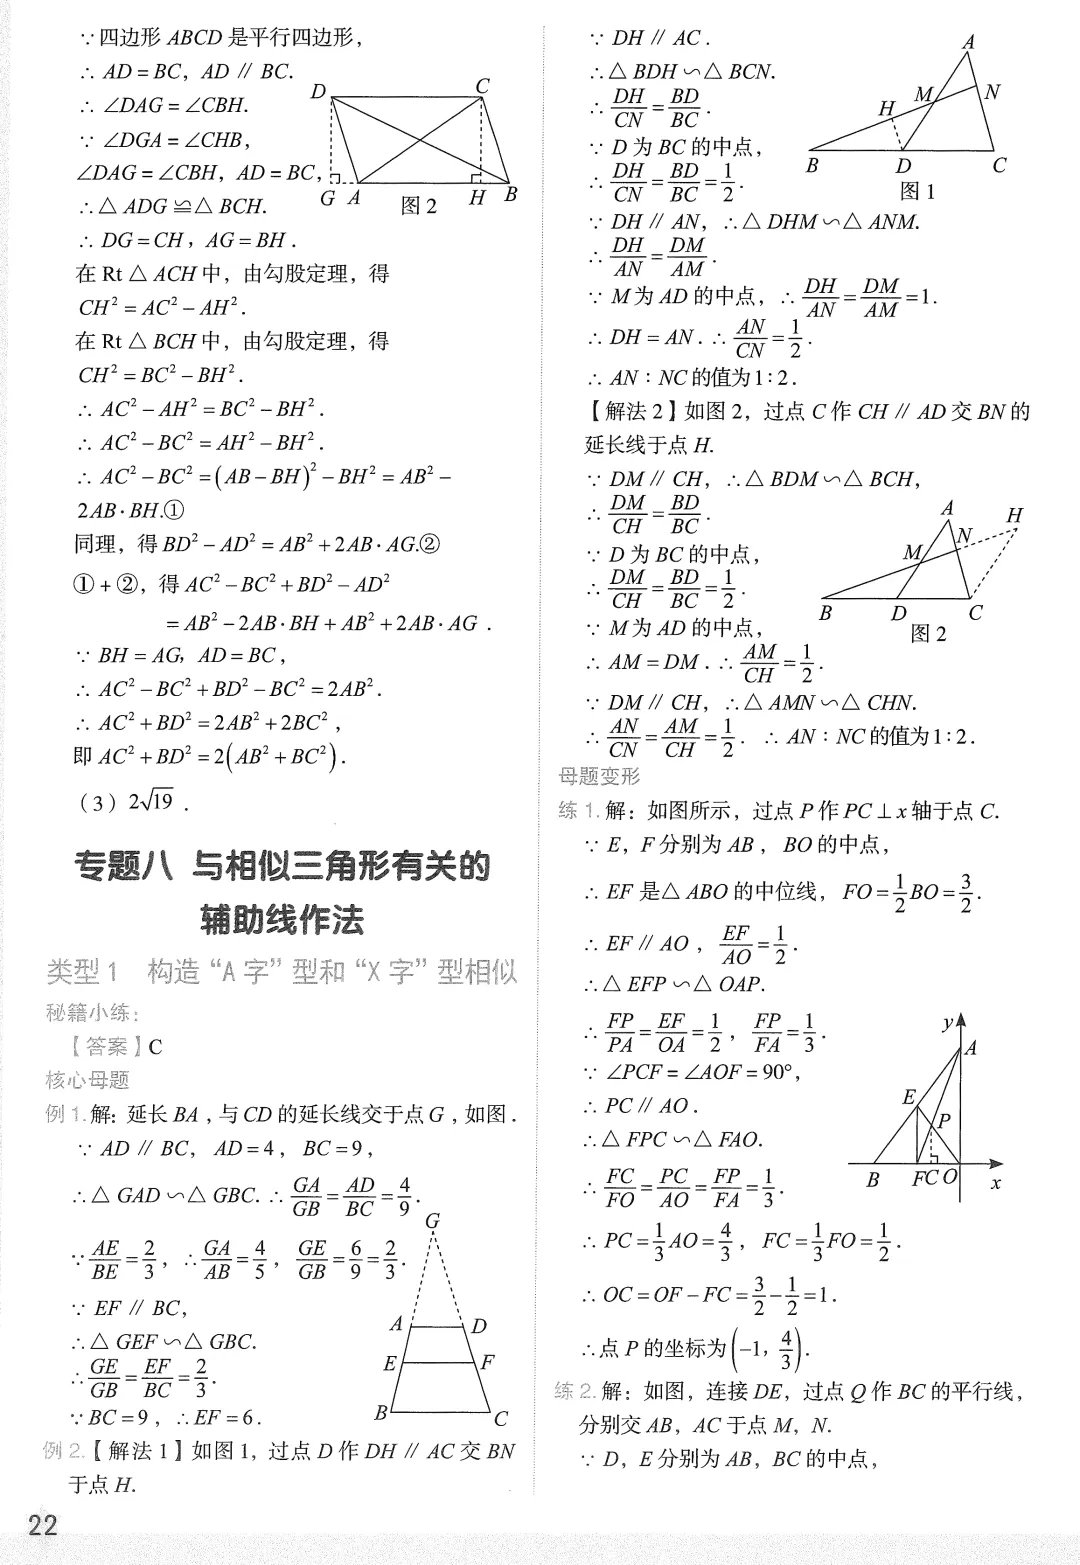 ∵四边形 ABCD 是平行四边形,
∴ AD = BC, AD // BC.
∴ ∠DAG = ∠CBH.
∵ ∠DGA = ∠CHB,
∠DAG = ∠CBH, AD = BC,
∴△ ADG ≌△ BCH.
D C G A H B
图2
∴ DG = CH, AG = BH .
在 Rt △ ACH 中, 由勾股定理, 得
CH² = AC² − AH².
在 Rt △ BCH 中, 由勾股定理, 得
CH² = BC² − BH².
∴ AC² − AH² = BC² − BH².
∴ AC² − BC² = AH² − BH².
∴ AC² − BC² = (AB − BH)² − BH² = AB² −
2AB · BH.①
同理, 得 BD² − AD² = AB² + 2AB · AG.②
① + ②, 得 AC² − BC² + BD² − AD²
= AB² − 2AB · BH + AB² + 2AB · AG .
∵ BH = AG, AD = BC,
∴ AC² − BC² + BD² − BC² = 2AB².
∴ AC² + BD² = 2AB² + 2BC²,
即 AC² + BD² = 2(AB² + BC²).
(3) 2√19 .
专题八 与相似三角形有关的
辅助线作法
类型1 构造“A 字”型和“X 字”型相似
秘籍小练:
【答案】C
核心母题
例 1. 解: 延长 BA , 与 CD 的延长线交于点 G , 如图 .
∵ AD // BC, AD = 4, BC = 9,
∴△ GAD ∽△ GBC. ∴ GA/GB = AD/BC = 4/9.
∵ AE/BE = 2/3, ∴ GA/AB = 4/5, GE/GB = 6/9 = 2/3.
∵ EF // BC,
∴△ GEF ∽△ GBC.
∴ GE/GB = EF/BC = 2/3.
∵ BC = 9, ∴ EF = 6.
G A D E F B C
例 2.【解法 1】如图 1, 过点 D 作 DH // AC 交 BN
于点 H.
22
∵ DH // AC.
∴△ BDH ∽△ BCN.
∴ DH/CN = BD/BC.
∵ D 为 BC 的中点,
∴ DH/CN = BD/BC = 1/2.
A M N H B D C
图1
∵ DH // AN, ∴△ DHM ∽△ ANM.
∴ DH/AN = DM/AM.
∵ M 为 AD 的中点, ∴ DH/AN = DM/AM = 1.
∴ DH = AN . ∴ AN/CN = 1/2.
∴ AN : NC 的值为 1 : 2.
【解法 2】如图 2, 过点 C 作 CH // AD 交 BN 的
延长线于点 H.
∵ DM // CH, ∴△ BDM ∽△ BCH,
∴ DM/CH = BD/BC.
∵ D 为 BC 的中点,
∴ DM/CH = BD/BC = 1/2.
∵ M 为 AD 的中点,
A H N M B D C
图2
∴ AM = DM . ∴ AM/CH = 1/2.
∵ DM // CH, ∴△ AMN ∽△ CHN.
∴ AN/CN = AM/CH = 1/2. ∴ AN : NC 的值为 1 : 2.
母题变形
练 1. 解: 如图所示, 过点 P 作 PC ⊥ x 轴于点 C.
∵ E, F 分别为 AB, BO 的中点,
∴ EF 是△ ABO 的中位线, FO = 1/2 BO = 3/2.
∴ EF // AO, EF/AO = 1/2.
∴△ EFP ∽△ OAP.
∴ FP/PA = EF/OA = 1/2, FP/FA = 1/3.
∵ ∠PCF = ∠AOF = 90°,
∴ PC // AO.
∴△ FPC ∽△ FAO.
∴ FC/FO = PC/AO = FP/FA = 1/3.
y A E P B F C O x
∴ PC = 1/3 AO = 4/3, FC = 1/3 FO = 1/2.
∴ OC = OF − FC = 3/2 − 1/2 = 1.
∴点 P 的坐标为 (−1, 4/3).
练 2. 解: 如图, 连接 DE, 过点 Q 作 BC 的平行线,
分别交 AB, AC 于点 M, N.
∵ D, E 分别为 AB, BC 的中点,